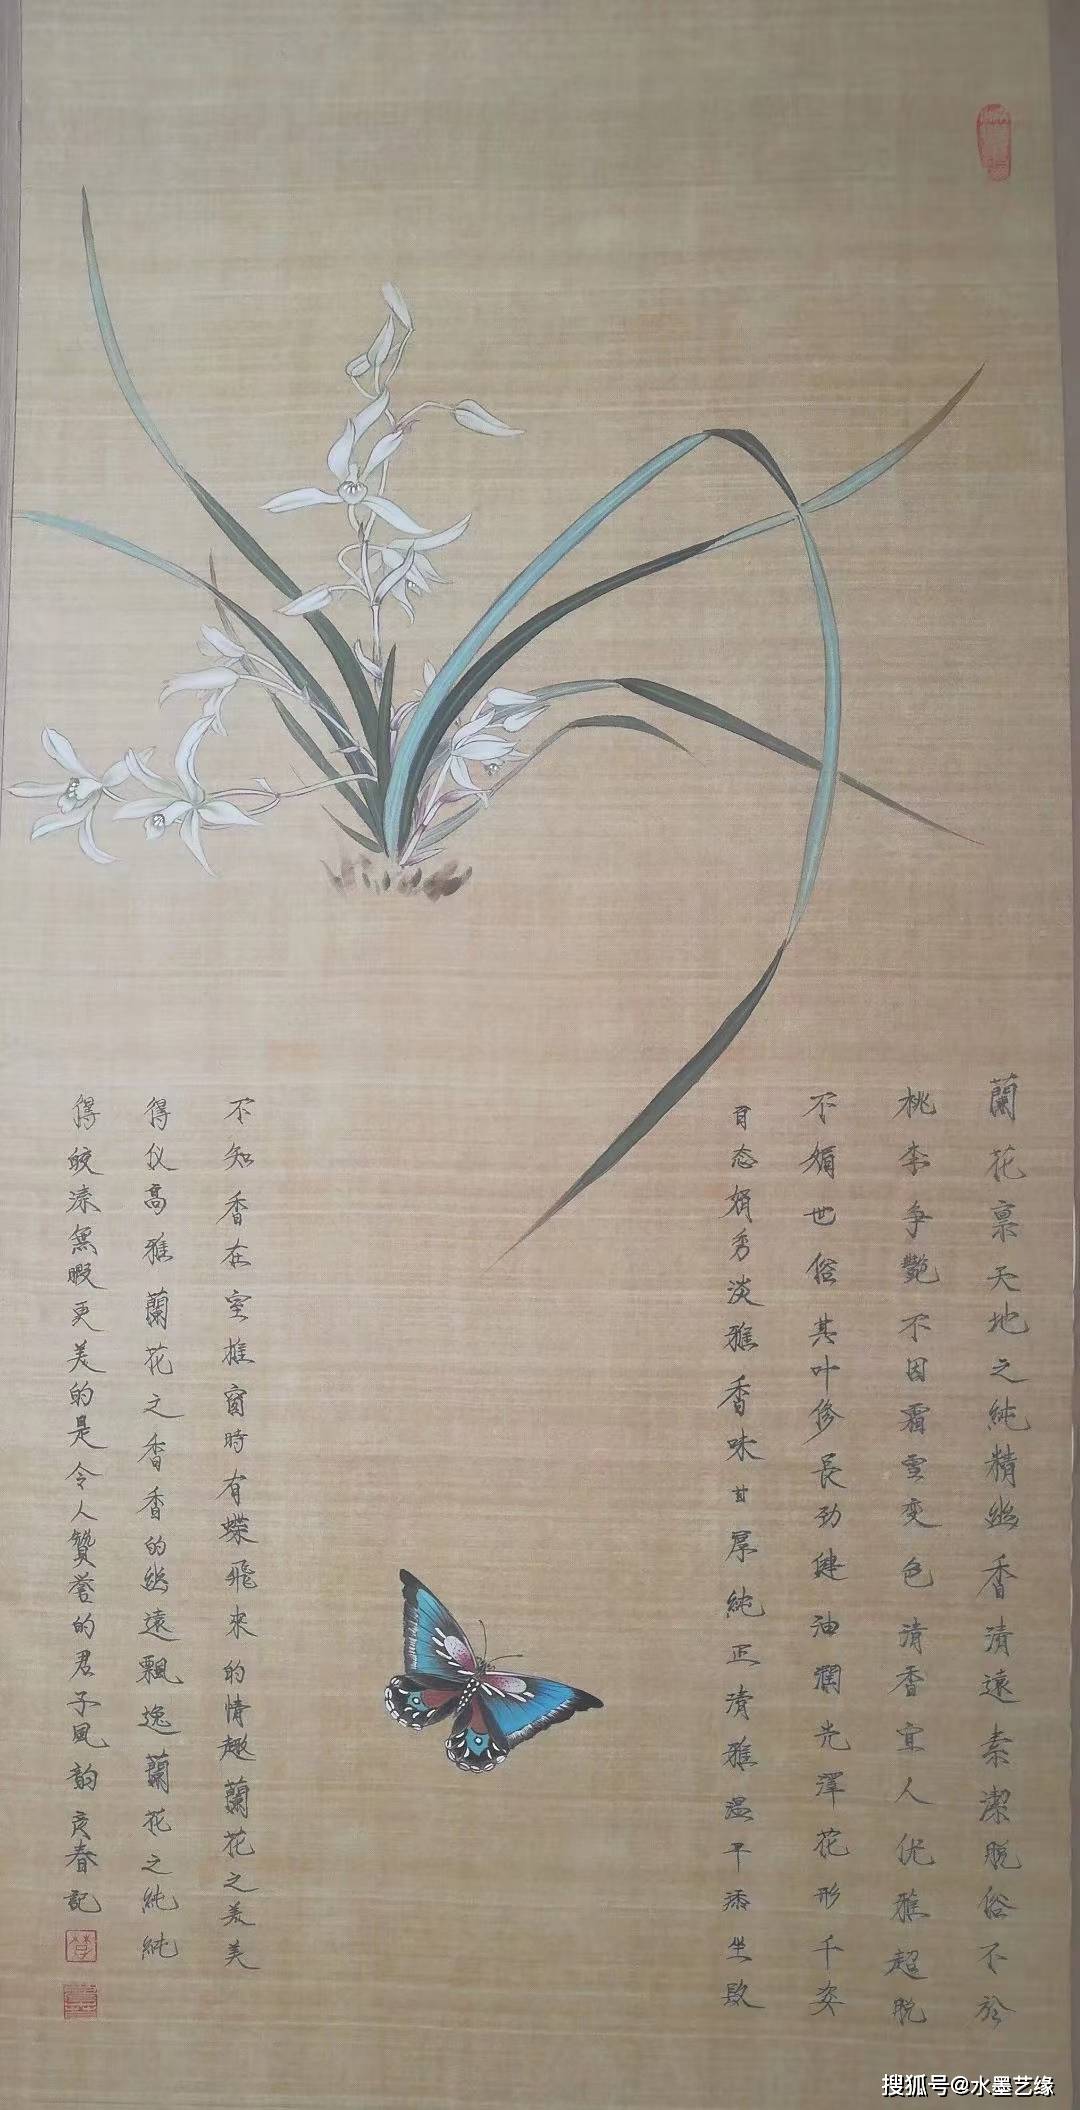 蘭花禀天地之純精幽香清遠素潔脱俗不於
桃李争艷不因霜雪变色清香宜人优雅超脱
不媚世俗其叶修長劲健油潤光澤花形千姿
百态娟秀淡雅香味甘厚純正清雅温和坐
不知香在室推窗時有蝶飛來的情趣蘭花之美美
得仪高雅蘭花之香香的幽遠飄逸蘭花之純純
得皎潔無暇更美的是令人贊誉的君子風韵庚春記
搜狐号@水墨艺缘